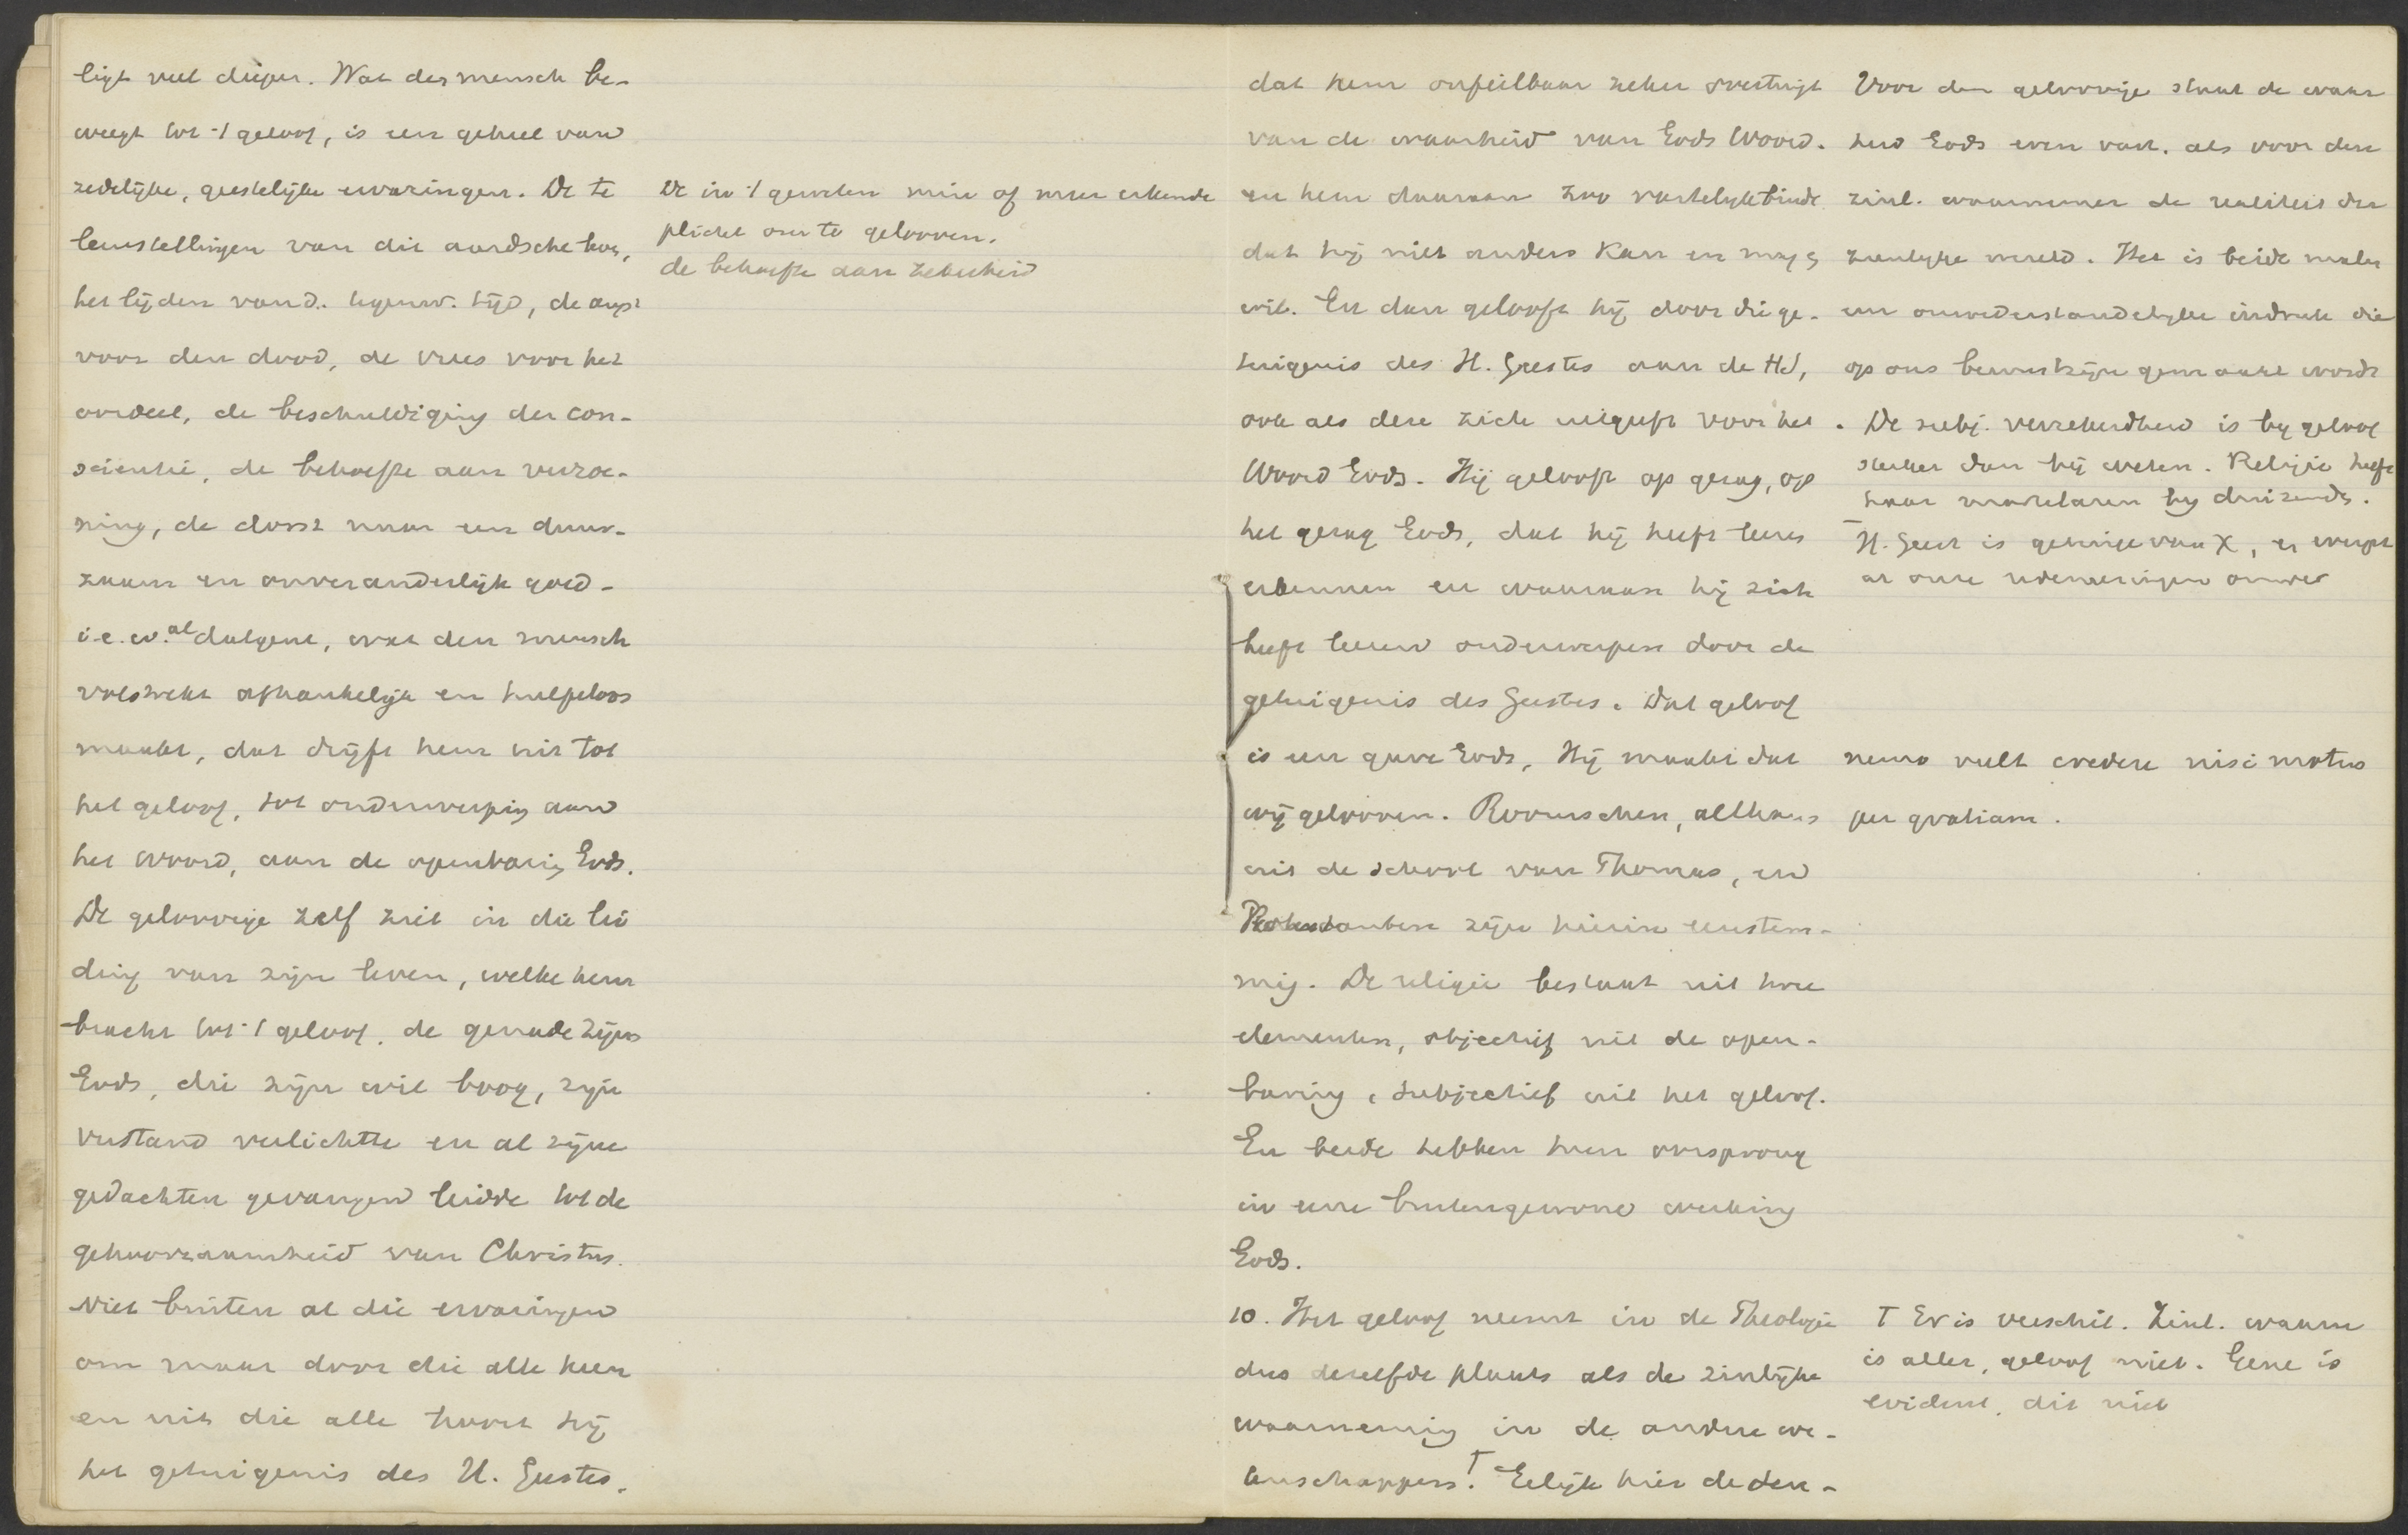 ligt veel dieper. Wat den mensch be-
weegt tot 't geloof, is een geheel van
zedelijke, geestelijke ervaringen. De te
leurstellingen van dit aardsche leven,
het lijden van d. tegenw. tijd, de angst
voor den dood, de vrees voor het
oordeel, de beschuldiging der con-
scientie, de behoefte aan verzoe-
ning, de dorst naar een duur-
zaam en onveranderlijk goed -
i.e.w. al datgene, wat den mensch
volstrekt afhankelijk en hulpeloos
maakt, dat drijft hem uit tot
het geloof, tot onderwerping aan
het woord, aan de openbaring Gods.
De geloovige zelf ziet in die lei
ding van zijn leven, welke hem
bracht tot 't geloof, de genade zijns
Gods, die zijn wil boog, zijn
verstand verlichtte en al zijne
gedachten gevangen leidde tot de
gehoorzaamheid van Christus.
Niet buiten al die ervaringen
om maar door die alle heen
en uit die alle hoort hij
het getuigenis des H. Geestes,
De in 't geweten min of meer erkende
plicht om te gelooven.
de behoefte aan zekerheid
dat hem onfeilbaar zeker overtuigt
van de waarheid van Gods Woord.
en hem daaraan zoo vastelijk bindt
dat hij niet anders kan en mag &
wil. En dan gelooft hij door die ge-
tuigenis des H. Geestes aan de HS,
ook als deze zich uitgeeft voor het
Woord Gods. Hij gelooft op gezag, op
het gezag Gods, dat hij heeft leeren
erkennen en waaraan hij zich
heeft leeren onderwerpen door de
getuigenis des Geestes. Dat geloof
is een gave Gods, Hij maakt dat
wij gelooven. Roomschen, althans
uit de school van Thomas, en
Protestanten zijn hierin eenstem-
mig. De religie bestaat uit twee
elementen, objectief uit de open-
baring, subjectief uit het geloof.
En beide hebben hun oorsprong
in eene buitengewone werking
Gods.
10. Het geloof neemt in de Theologie
dus dezelfde plaats als de zinlijke
waarneming in de andere we-
tenschappen.T Gelijk hier de den-
Voor den geloovige staat de waar
heid Gods even vast, als voor den
zinl. waarnemer de realiteit der
zienlijke wereld. Het is beide malen
een onwederstandelijke indruk die
op ons bewustzijn gemaakt wordt
. De subj. verzekerdheid is bij geloof
sterker dan bij weten. Religie heeft
haar martelaren bij duizende.
H. Geest is getuige van X, er werpt
al onze redeneeringen omver
nemo vult credere nisi motus
per gratiam.
T Er is verschil. Zinl. waarn
is aller, geloof niet. Gene is
evident, dit niet